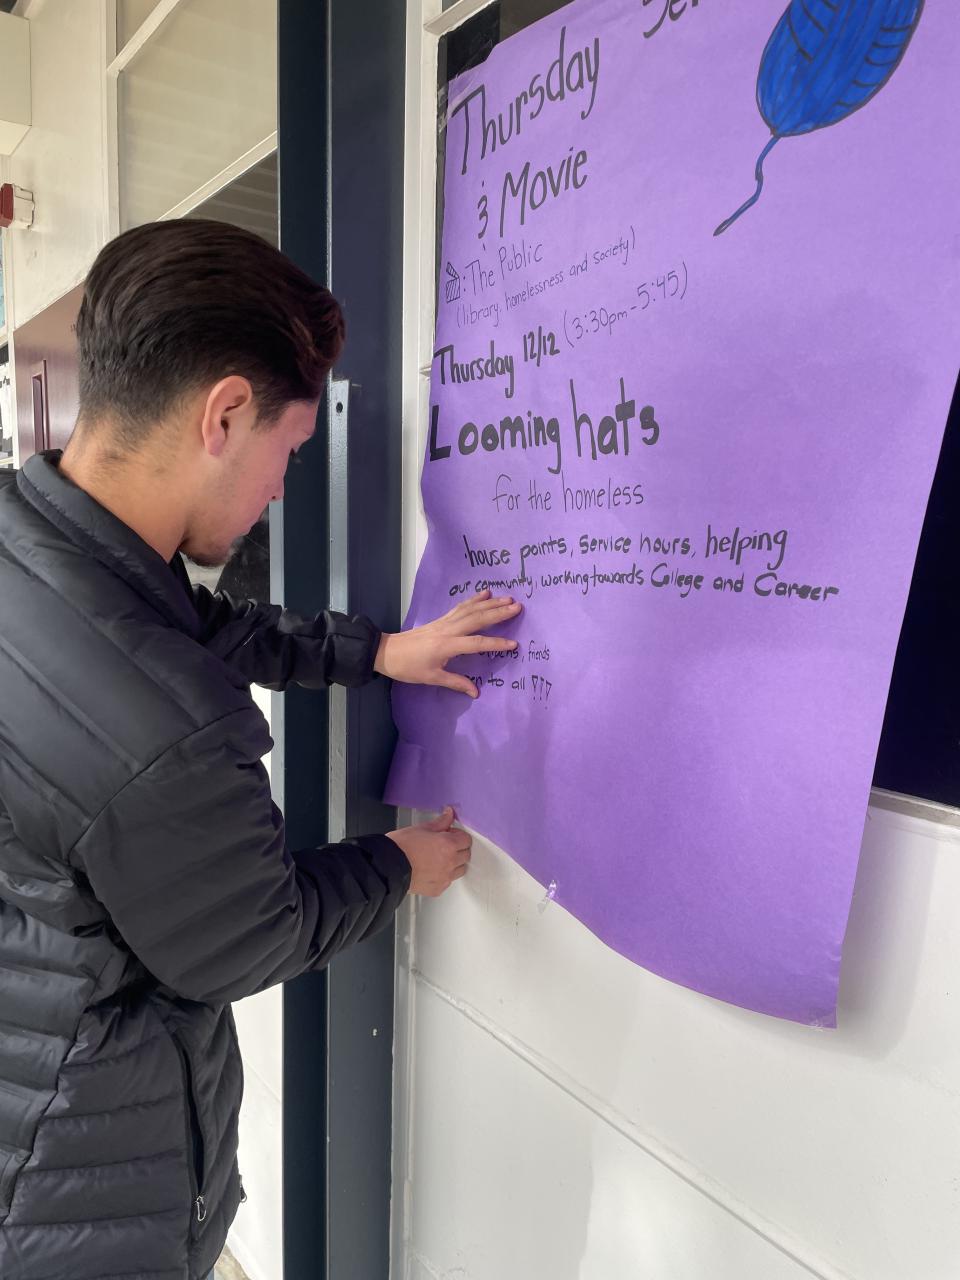 Thursday Ser
& Movie
: The Public
(library, homelessness and society)
Thursday 12/12 (3:30pm-5:45)
Looming hats
for the homeless
·house points, service hours, helping
our community, working towards College and Career
friends
to all !!!